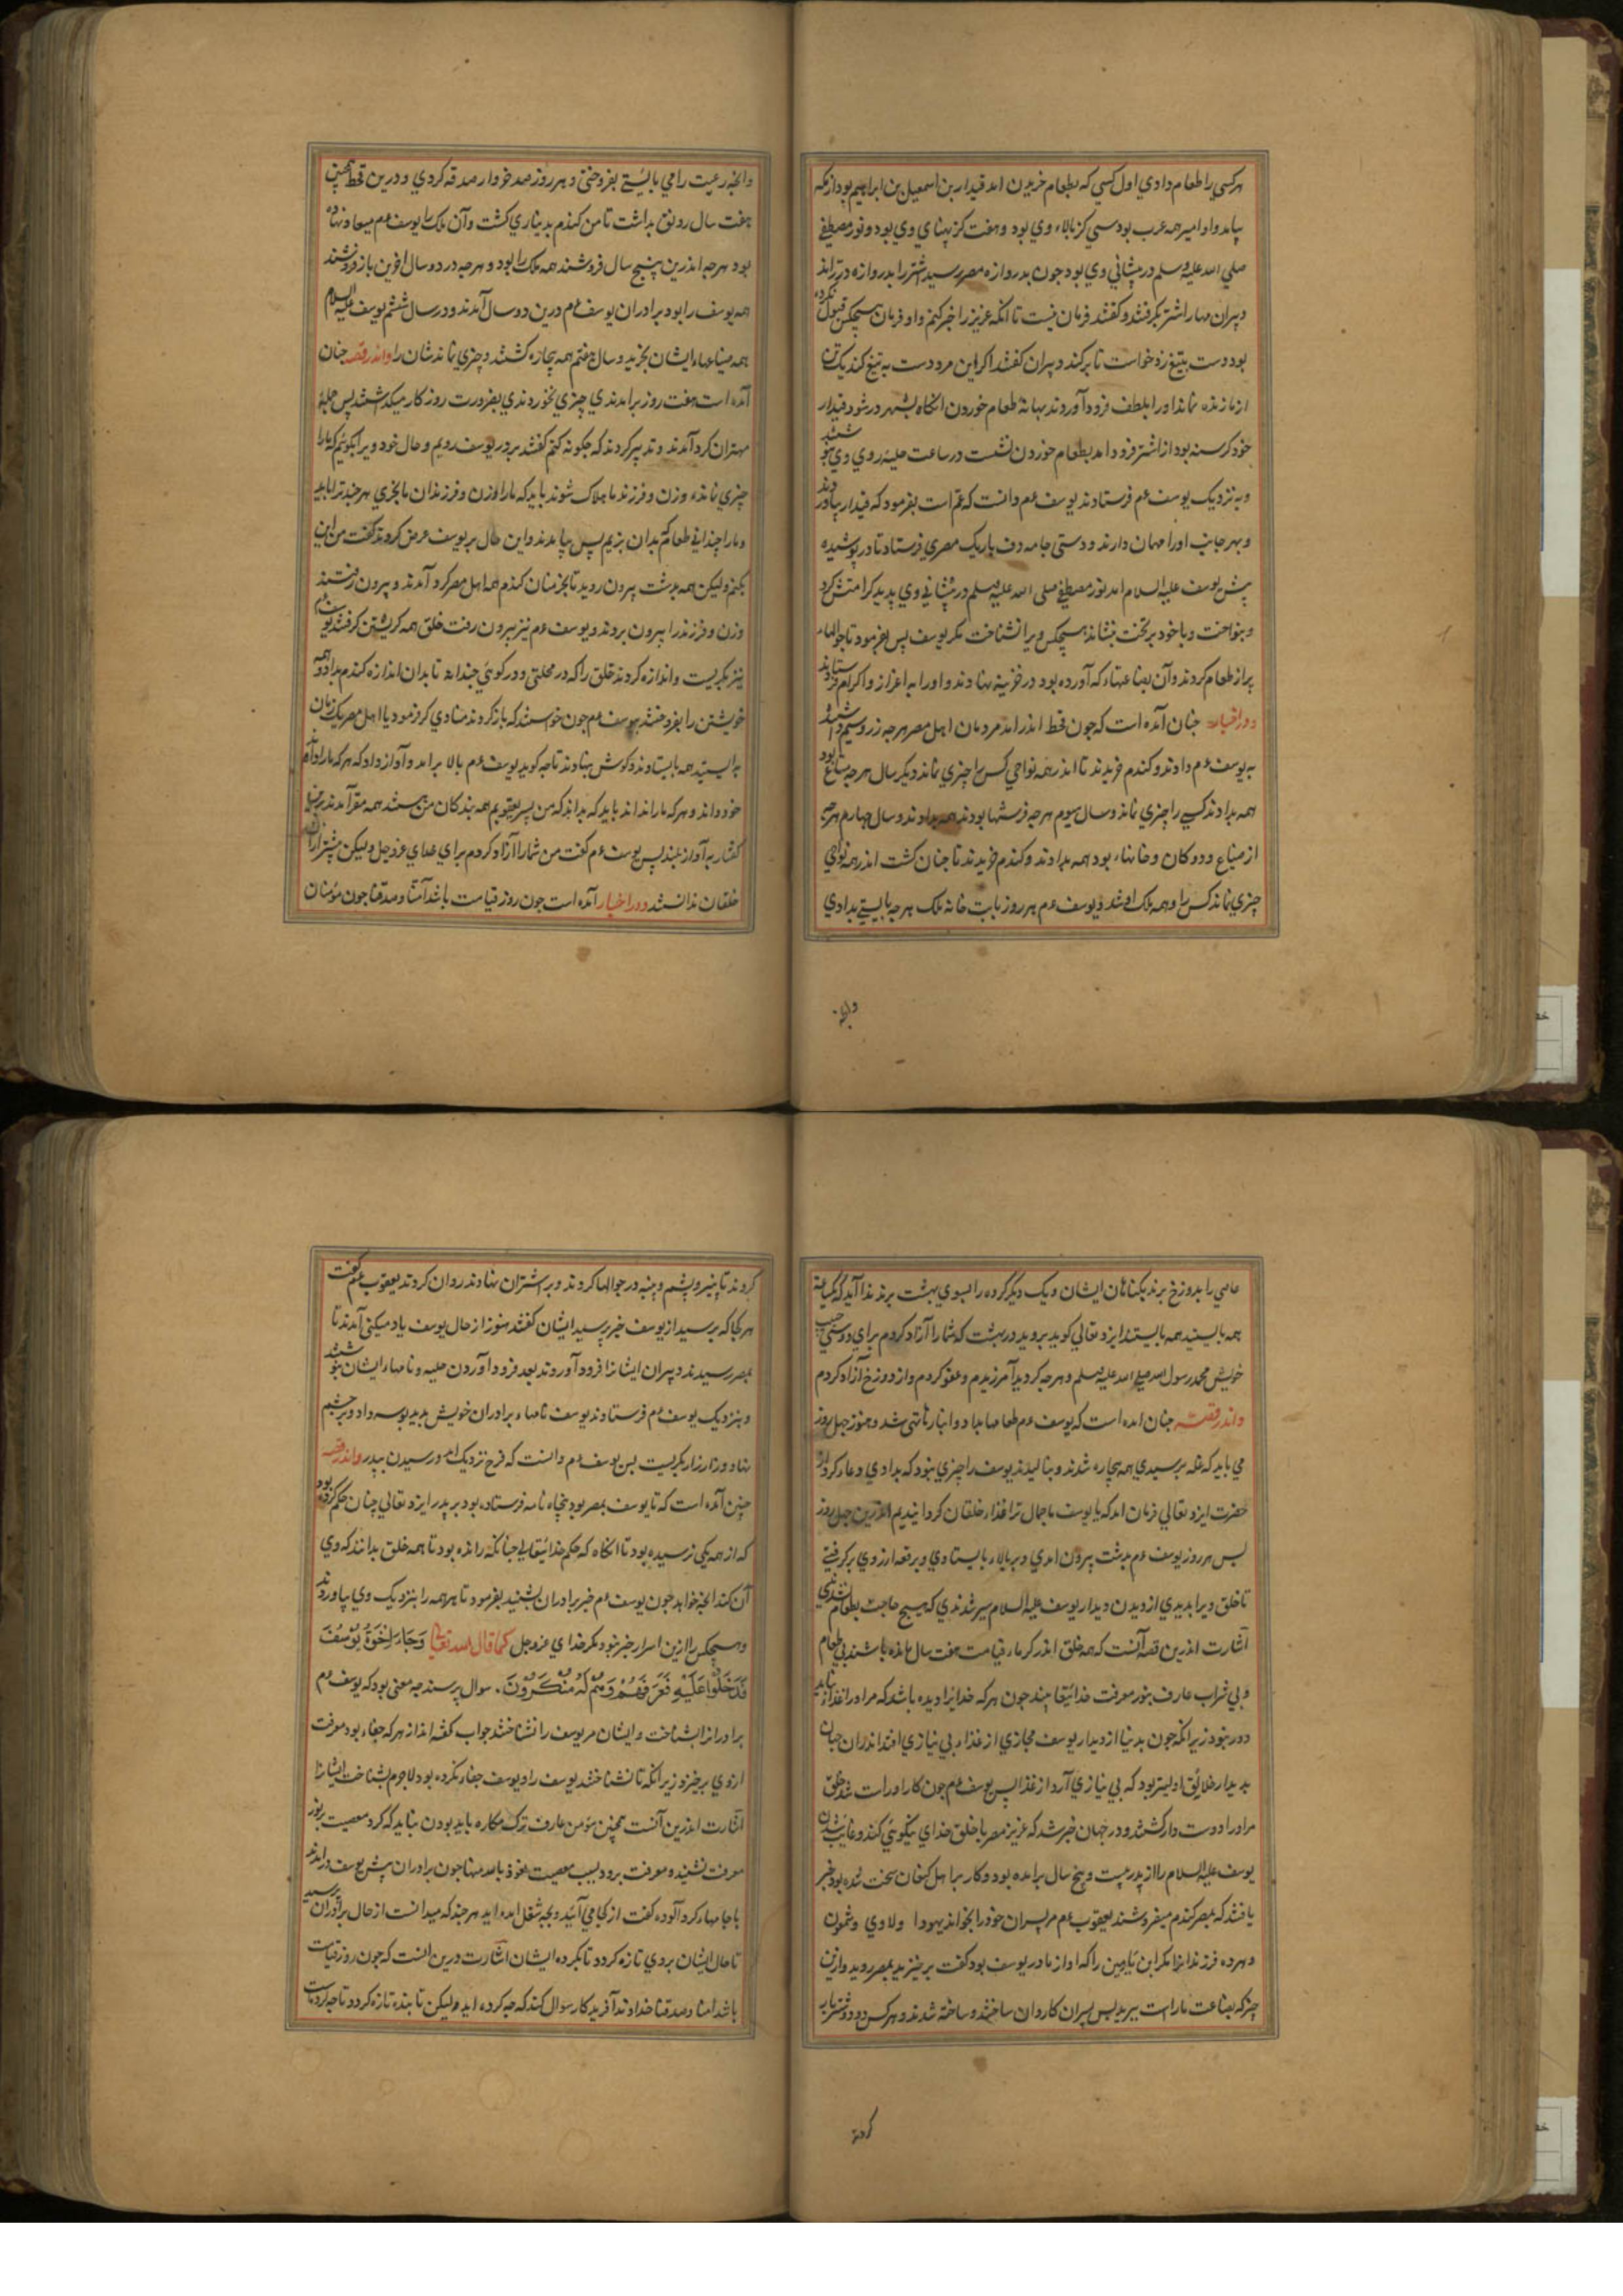 هر کسی را طعام دادی اول کسی که بطعام خریدن امد قیدار بن اسمعیل بن ابراهیم بود از مکه
بیامد و او امیر همه عرب بود سی کز بالاء وی بود و هفت کز پهنای وی بود و نور مصطفی
صلی الله علیه وسلم در پیشانی وی بود جون بدروازه مصر رسید اشتر را بدروازه در تراند
دبیران مهار اشتر بکرفتند و کفتند فرمان نیست تا انکه عزیز را خبر کنیم و او فرمان هیچکس قبول نکرده
بود دست بتیغ زد خواست تا برکند دبیران کفتند اکر این مرد دست به تیغ کند یک تن
از ما زنده نماند او را بلطف فرود آوردند بهانه طعام خوردن انکاه بشهر در شود قیدار
خود کرسنه بود از اشتر فرود امد بطعام خوردن نشست در ساعت حلیه روی وی بنوشتند
و به نزدیک یوسف عم فرستادند یوسف عم دانست که عم است بفرمود که قیدار بیاورند
و بهر جانب او را مهمان دارند و دستی جامه دق باریک مصری فرستاد تا در پوشیده
پیش یوسف علیه السلام امد نور مصطفی صلی الله علیه وسلم در پیشانی وی بدید کرامتش کرد
و بنواخت و با خود بر تخت بنشاند هیچکس ویرا نشناخت مکر یوسف پس بفرمود تا جوالهاء
پر از طعام کردند و آن بضاعتهاء که آورده بود در خزینه نهادند و او را به اعزاز و اکرام فرستادند
و در اخبار جنان آمده است که جون قحط اندر امد مردمان اهل مصر هر جه زر و سیم داشتند
به یوسف عم دادند و کندم خریدند تا اندر همه نواحی کس را چیزی نماند دیکر سال هر جه متاع بود
همه بدادند کسی را چیزی نماند و سال سیوم هر جه فرشتها بودند همه بدادند و سال جهارم هر جه
از ضیاع و دوکان و خانهاء بود همه بدادند و کندم خریدند تا جنان کشت اندر همه نواحی
چیزی نماند کس را و همه ملک او شد و یوسف عم هر روز بابت خانه ملک هر جه بایستی بدادی
وانجه
وانجه رعیت را می بایستی بفروختی و هر روز صد خروار صدقه کردی و درین قحط همچنین
هفت سال رونق بداشت تا من کندم بدیناری کشت و آن ملک را یوسف عم میعاد نهاده
بود هر جه اندرین پنج سال فروشند همه ملک را بود و هر جه در دو سال اخرین باز فروشند
همه یوسف را بود برادران یوسف عم درین دو سال آمدند و در سال ششم یوسف علیه السلام
همه ضیاعهاء ایشان بخرید و سال هفتم همه بیچاره کشتند و چیزی نماندشان را و اندر قصه جنان
آمده است هفت روز برامدندی چیزی نخوردندی بضرورت روز کار میکذاشتند پس جمله
مهتران کرد آمدند و تدبیر کردند که جکونه کنیم کفتند بر در یوسف رویم و حال خود ویرا بکوئیم که ما را
چیزی نمانده و زن و فرزند ما هلاک شوند باید که ما را و زن و فرزندان ما بخری هر جند ترا باید
و ما را چندانی طعام که بدان بزیم پس بیامدند و این حال بر یوسف عرض کردند کفت من این
بکنم ولیکن همه بدشت بیرون روید تا بخرمتان کندم همه اهل مصر کرد آمدند و بیرون رفتند
و زن و فرزند را بیرون بردند و یوسف عم نیز بیرون رفت خلق همه کریستن کرفتند یوسف عم
نیز بکریست و اندازه کردند خلق را که در محلتی و در کوئی جنداند تا بدان اندازه کندم بدادند همه
خویشتن را بفروختند یوسف عم جون خواستند که باز کردند منادی کر فرمود یا اهل مصر یک زمان
بایستید همه بایستادند و کوش بنهادند تا جه کوید یوسف عم بالا برامد و آواز داد که هر که ما را داند
خود داند و هر که ما را نداند باید که بداند که من پسر یعقوبم همه بندکان من هستند همه مقر آمدند برین
کفتار به آواز بلند پس یوسف عم کفت من شما را آزاد کردم برای خدای عزوجل ولیکن پیشتر ازان
خلقان ندانستند و در اخبار آمده است جون روز قیامت باشد آمنا و صدقنا جون مؤمنان
عاصی را بدوزخ برند بکناهان ایشان و یک دیکر کروه را بسوی بهشت برند ندا آید که یکساعة
همه بایستید همه بایستند ایزد تعالی کوید بروید در بهشت که شما را آزاد کردم برای دوستی حبیب
خویش محمد رسول الله صلی الله علیه وسلم و هر جه کردید آمرزیدم و عفو کردم و از دوزخ آزاد کردم
و اندر قصه جنان امده است که یوسف عم طعامها بداد و انبارها تهی شد و هنوز جهل روز
می باید که غله برسیدی همه بیجاره شدند و بنالیدند یوسف را چیزی نبود که بدادی دعاء کرد از
حضرت ایزد تعالی فرمان امد که یا یوسف ما جمال ترا غذاء خلقان کردانیدیم اندرین جهل روز
پس هر روز یوسف عم بدشت بیرون امدی و بر بالاء بایستادی و برقعه از روی بر کرفتی
تا خلق ویرا بدیدی از دیدن دیدار یوسف علیه السلام سیر شدندی که هیچ حاجت بطعام نشدندی
آشارت اندرین قصه آنست که همه خلق اندر کرماء قیامت هفت سال مانده باشند بی طعام
و بی شراب عارف بنور معرفت خدائیتعا بیند جون هر که خدایرا دیده باشد که مر او را غذا نباید
دور نبود زیرانکه جون بدنیا از دیدار یوسف مجازی از غذاء بی نیازی افتد اندران جهان
بدیدار خلائق اولیتر بود که بی نیازی آرد از غذا پس یوسف عم جون کار او راست شد و خلق
مر او را دوست دار کشتند و در جهان خبر شد که عزیز مصر با خلق خدای نیکوئی کند و غایب شدن
یوسف علیه السلام را از پدر بیست و پنج سال برامده بود و کار بر اهل کنعان سخت شده بود خبر
یافتند که بمصر کندم میفروشند یعقوب عم مر پسران خود را بخواند یهودا و لاوی و شمون
و هر ده فرزندانرا مکر ابن یامین را که او از مادر یوسف بود کفت برخیزید بمصر روید و ازین
چیز که بضاعت ماراست ببرید پس پسران کاروان ساختند و ساخته شدند و هر کس دو دو شتر بار
کردند
کردند تا پنیر و پشم و پنبه در جوالها کردند و بر اشتران نهادند روان کردند یعقوب عم کفت
هر کجا که برسید از یوسف خبر پرسید ایشان کفتند هنوز از حال یوسف یاد میکنی آمدند تا
بمصر رسیدند دبیران ایشانرا فرود آوردند بعد فرود آوردن حلیه و نامهاء ایشان بنوشتند
و بنزدیک یوسف عم فرستادند یوسف نامهاء برادران خویش بدید بوسه داد و بر چشم
نهاد و زار زار بکریست پس یوسف عم دانست که فرج نزدیک امد و رسیدن پدر و اندر قصه
چنین آمده است که تا یوسف بمصر بود پنجاه نامه فرستاده بود بر پدر ایزد تعالی چنان حکم کرده بود
که از همه یکی نرسیده بود تا انکاه که حکم خدائیتعالی جنانکه رانده بود تا همه خلق بدانند که وی
آن کند انجه خواهد جون یوسف عم خبر برادران بشنید بفرمود تا هر همه را بنزدیک وی بیاورند
و هیچکس را ازین اسرار خبر نبود مکر خدای عزوجل کما قال الله تعالی وَجَاءَ اِخْوَةُ یُوْسُفَ
فَدَخَلُوْا عَلَیْهِ فَعَرَفَهُمْ وَهُمْ لَهُ مُنْکِرُوْنَ. سوال پرسند جه معنی بود که یوسف عم
برادرانرا بشناخت و ایشان مر یوسف را نشناختند جواب کفته اند از هر که جفاء بود معرفت
از وی برخیزد زیرانکه تا نشناختند یوسف را و یوسف جفاء نکرده بود لاجرم بشناخت ایشانرا
آشارت اندرین آنست همچنین مؤمن عارف ترک مکاره باید بودن نباید که کرد معصیت بر نور
معرفت نشیند و معرفت برود بسبب معصیت نعوذ بالله منها جون برادران پیش یوسف درامدند
با جامهاء کرد آلوده کفت از کجا می آئید و بجه شغل امده اید هر جند که میدانست از حال برادران پرسید
تا حال ایشان بروی تازه کردد تا بکرده ایشان آشارت درین انست که جون روز قیامت
باشد آمنا و صدقنا خداوند آفریدکار سوال کند که جه کرده اید ولیکن تا بنده تازه کردد تا جه کرده است